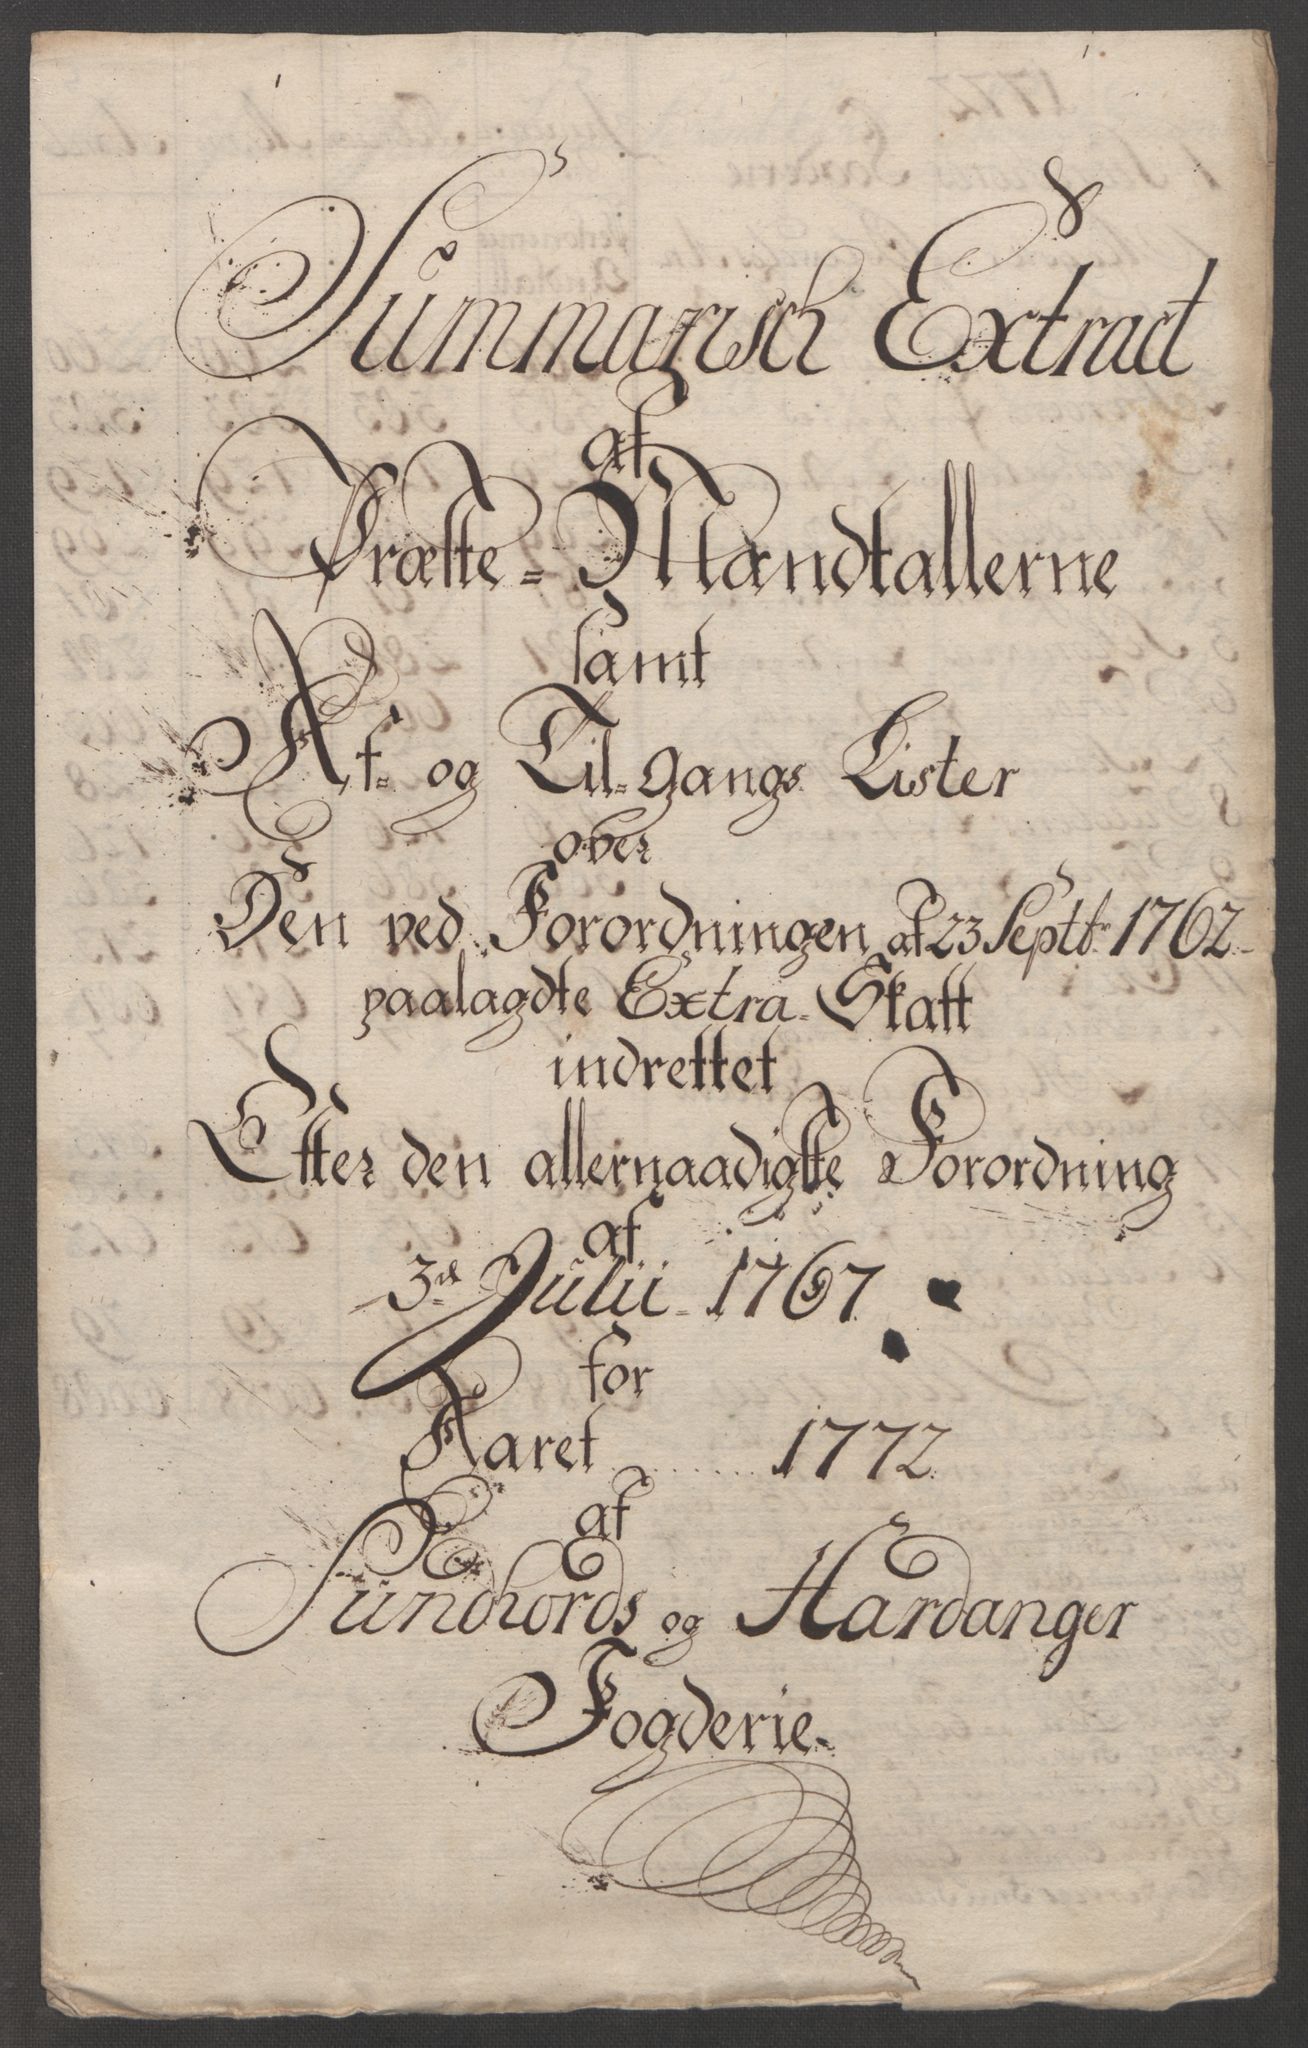 Summarisch Extract
af
Præste-Mandtallerne
samt
Af- og Til-gangs Lister
over
Den ved Forordningen af 23 Septbr. 1762
paalagdte Extra-Skatt
indrettet
Efter den allernaadigste Forordning
af
3d Julii 1767
for
Aaret ...... 1772
af
Sundhords og Hardanger
Fogderie